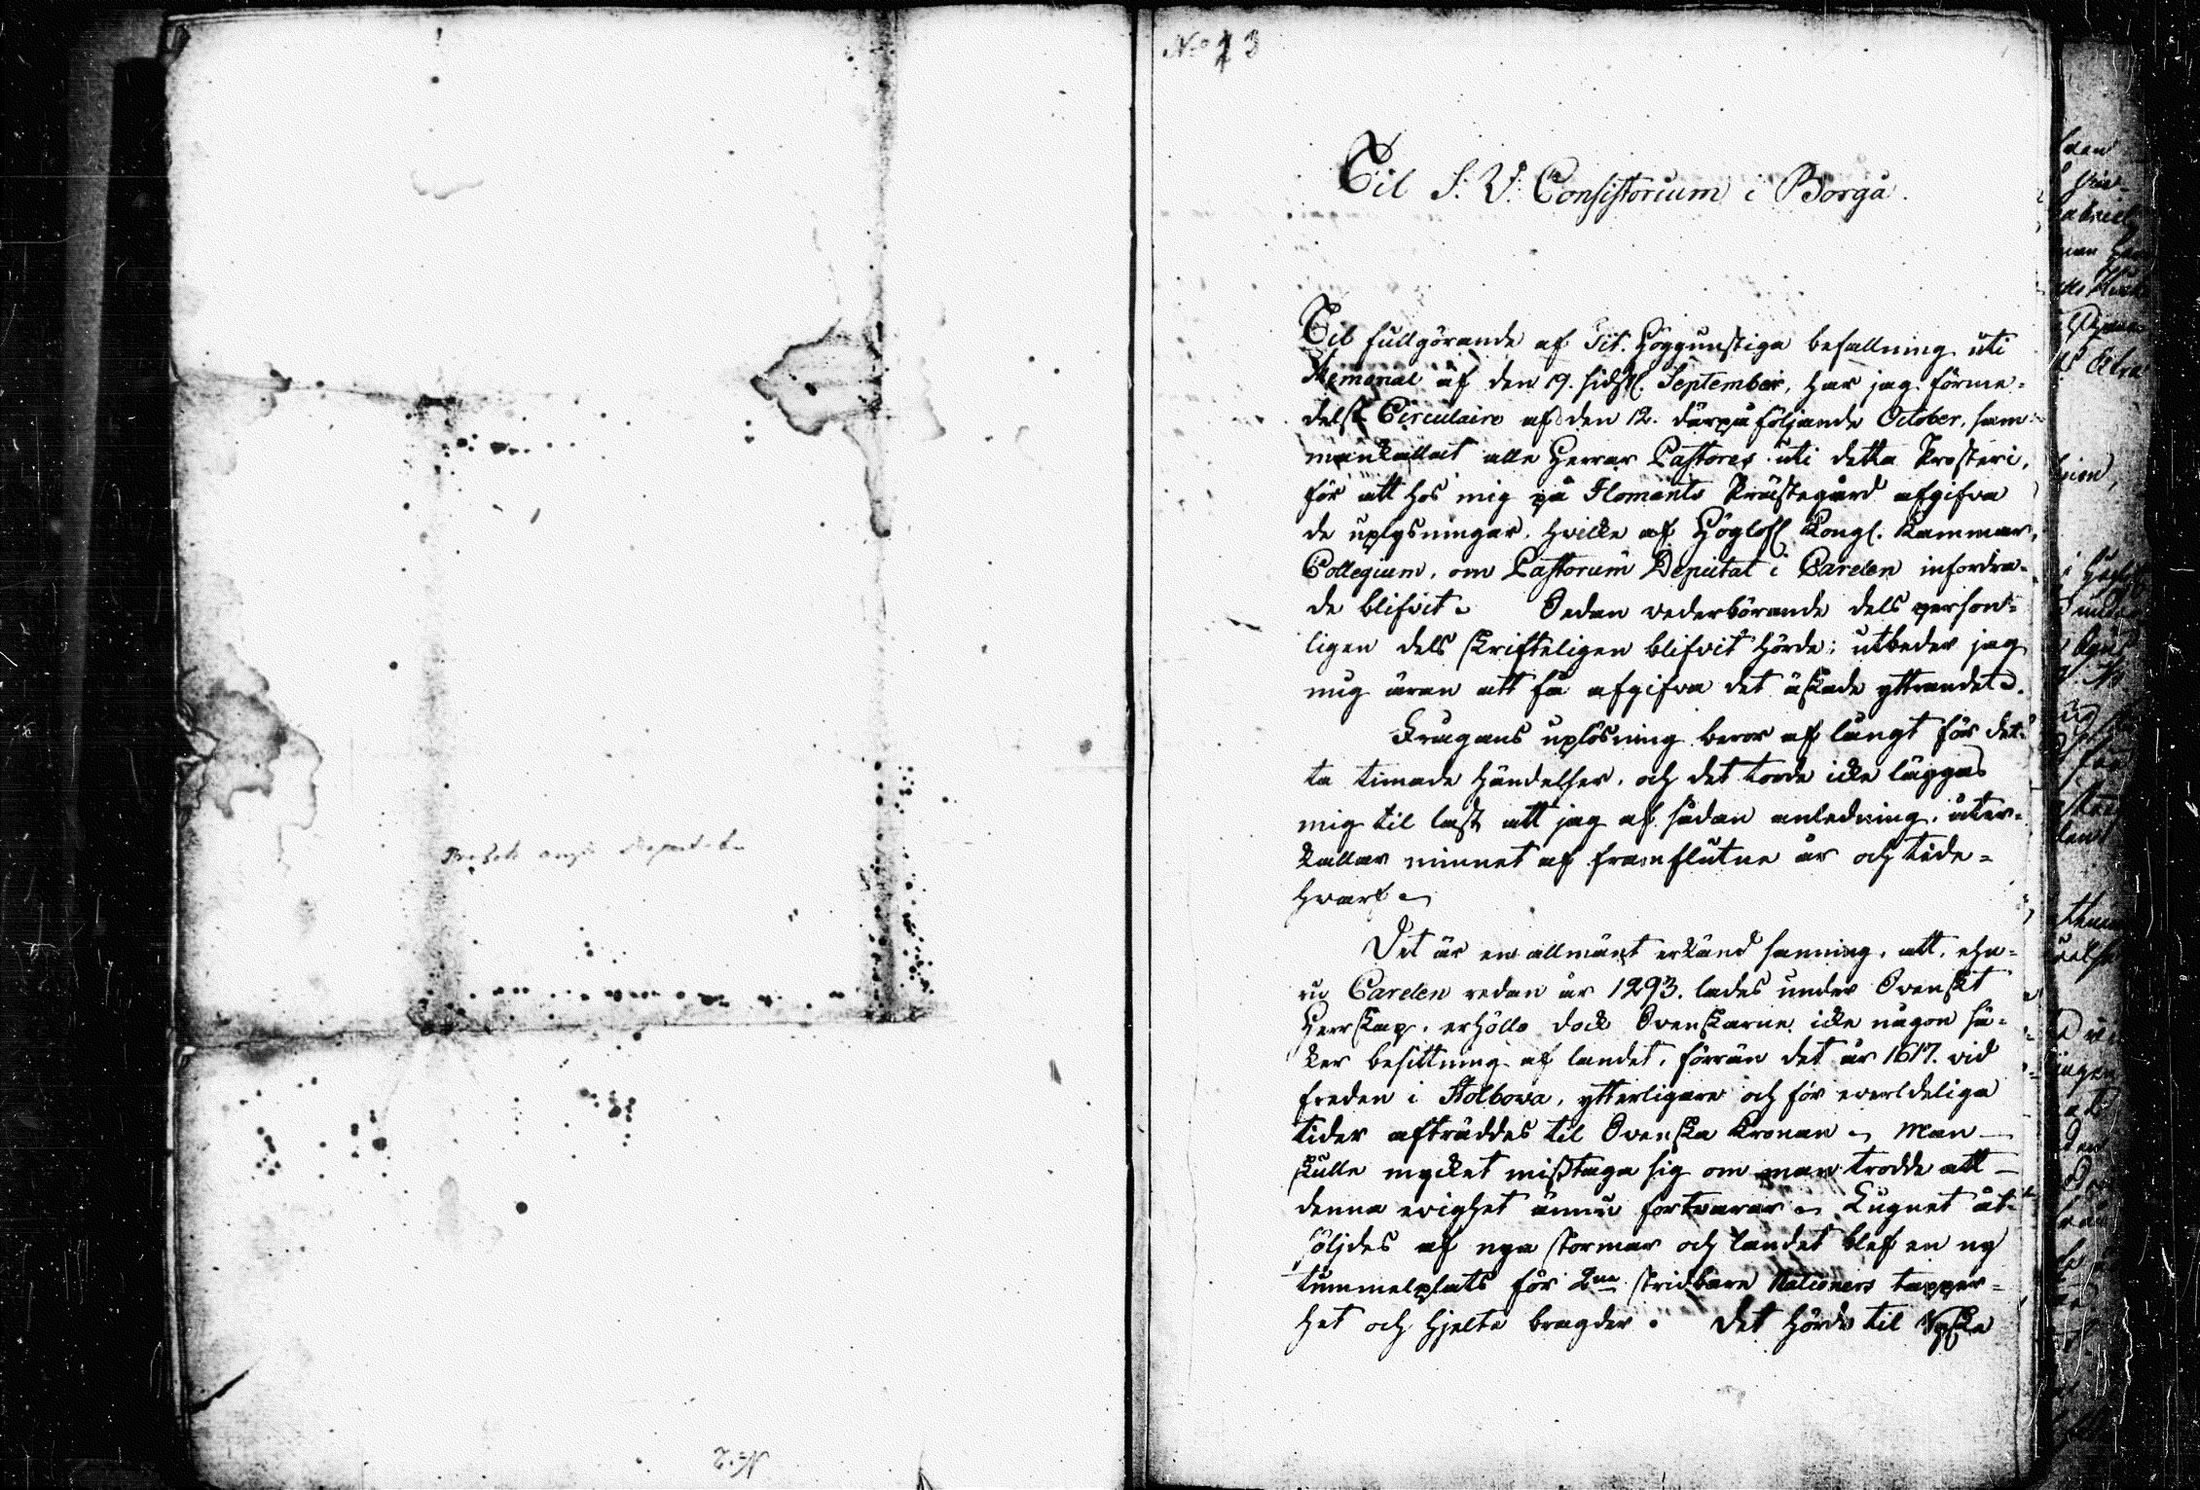 No 13
Til S. V. Consistorium i Borgå.
Til fullgörande af Tit. Höggunstiga befallning uti
Memorial af den 19. sidstl. September, har jag förme-
delst Circulaire af den 12. därpåföljande October, sam-
mankallat alle Herrar Pastores uti detta Prosteri,
för att hos mig på Ilomants Prästegård afgifva
de uplysningar, hvilke af Höglofl. Kongl. Kammar
Collegium, om Pastorum Deputat i Carelen infordra-
de blifvit. Sedan vederbörande dels person-
ligen dels skrifteligen blifvit hörde; utbeder jag
mig äran att få afgifva det äskade yttrandet.
Frågans uplösning beror af långt för det-
ta timade händelser, och det torde icke läggas
mig til last att jag af sådan anledning, åter-
kallar minnet af framflutne år och tide-
hvarf.
Det är en allmänt erkänd sanning, att, eha-
ru Carelen redan år 1293. lades under Svenskt
Herrskap, erhöllo dock Svenskarne icke någon sä-
ker besittning af landet, förrän det år 1617. vid
freden i Stolbowa, ytterligare och för everldeliga
tider afträddes til Svenska Kronan. Man
skulle mycket misstaga sig om man trodde att
denna evighet ännu fortvarar. Lugnet åt-
följdes af nya stormar och landet blef en ny
tummelplats för 2ne stridbare Nationers tapper-
het och hjelte bragder. Det hörde til Ryska
No: 2